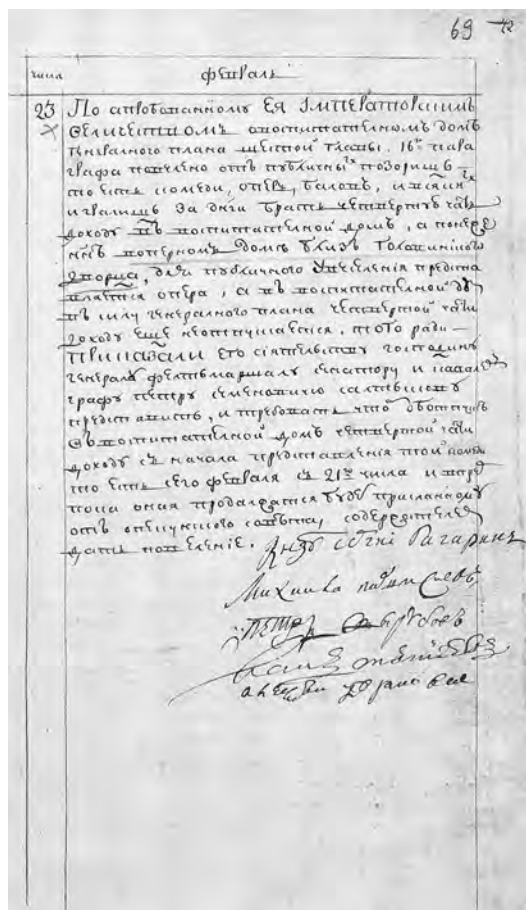 69 72
числа февраль
23 По апробованному Ея Императорскимъ
Величеством о воспитательномъ доме
генерального плана шестой главы, 16го пара
графа повелено отъ публичных позорищъ
то есть комеди, оперъ, балов, и всяких
игралищъ за днги брать четвертую часть
доходу в воспитательной домъ, а поне
ном доме близ Головинского
дворца, для публичного увеселения предста
вляется опера, а в воспитательной до
в силу генерального плана четвертой части
доходу еще неотпущается, того ради
приказали его сиятельству господину
генералу фелтьмаршалу сенатору и кавале
графу Петру Семеновичу Салтыкову
представить, и требовать чтоб
в воспитательной домъ четвертой части
доходу с начала представления той
то есть сего февраля с 21го числа и впре
пока оная продалжатся буде присланному
отъ опекунского совета, содержателе
дать повеление. Князь Сергей Гагаринъ
Михаила
Петръ Вырубовъ